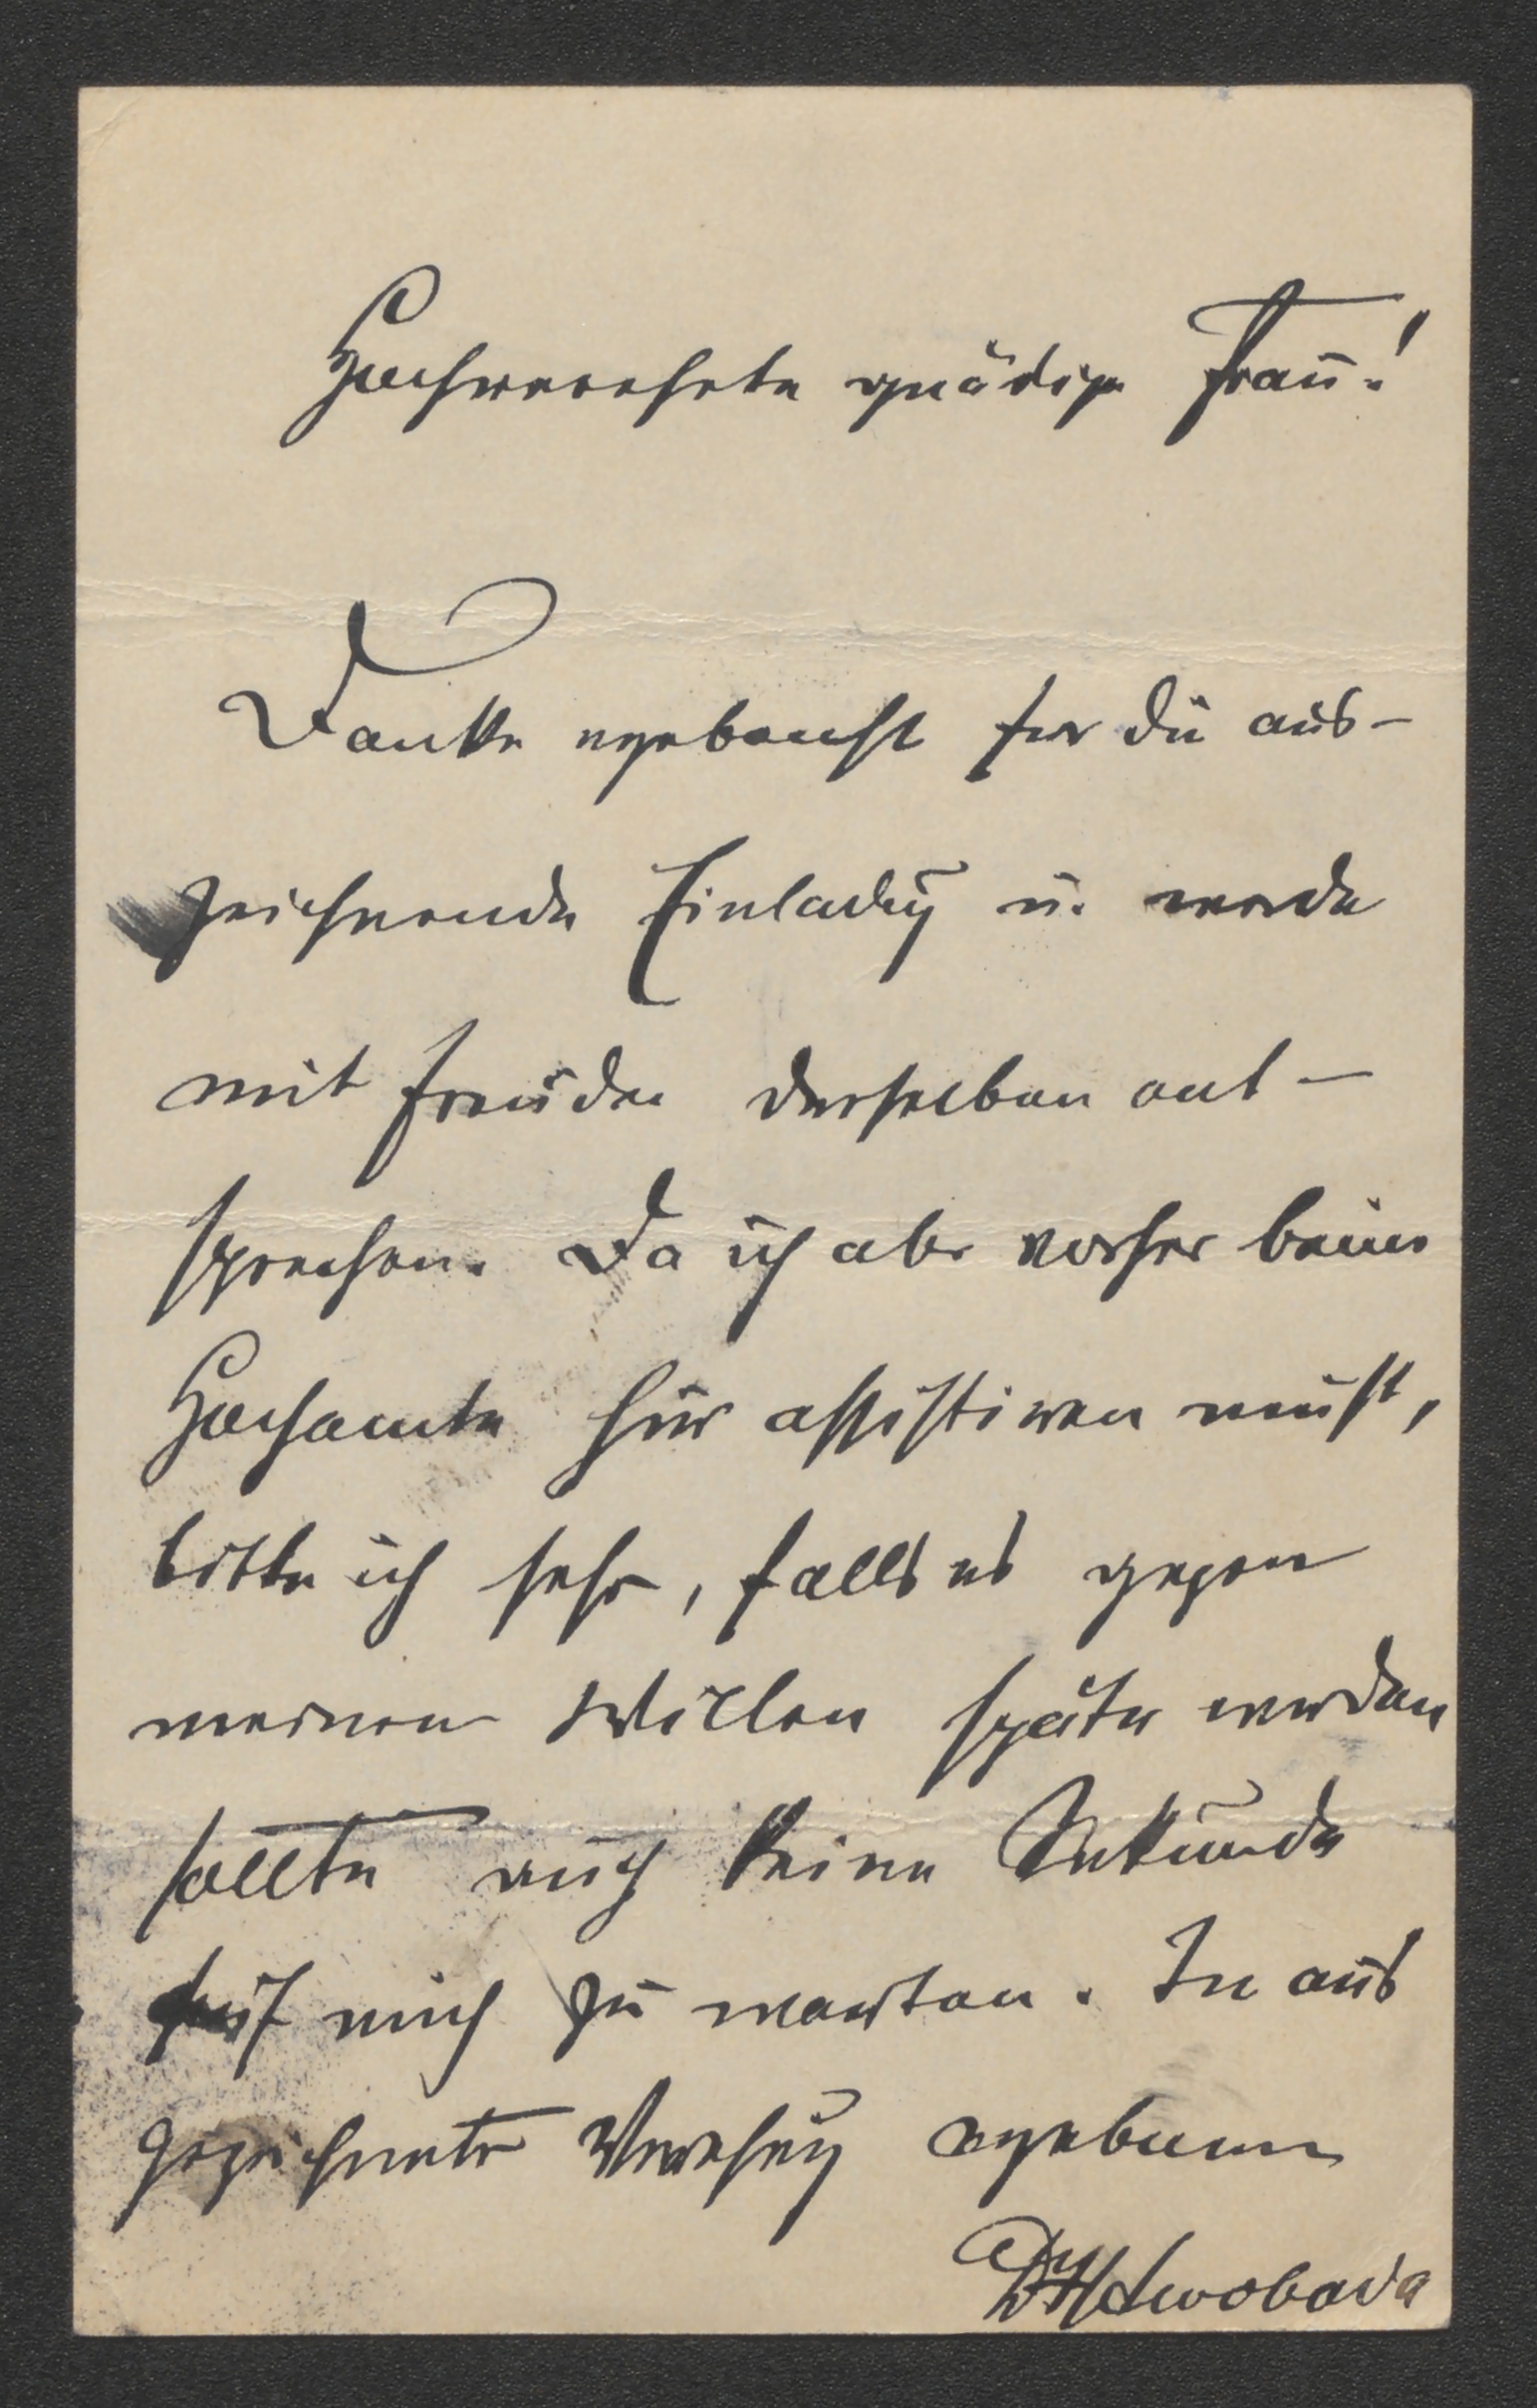 Hochverehrte gnädige Frau!
Danke ergebenst für die aus-
zeichnende Einladung u. werde
mit Freuden derselben ent-
sprechen. Da ich aber vorher beim
Hochamte hier assistiren muß,
bitte ich sehr, falls es gegen
meinen Willen später werden
sollte auch keine Sekunde
auf mich zu warten. In aus
gezeichneter Verehrung ergebener
Swoboda